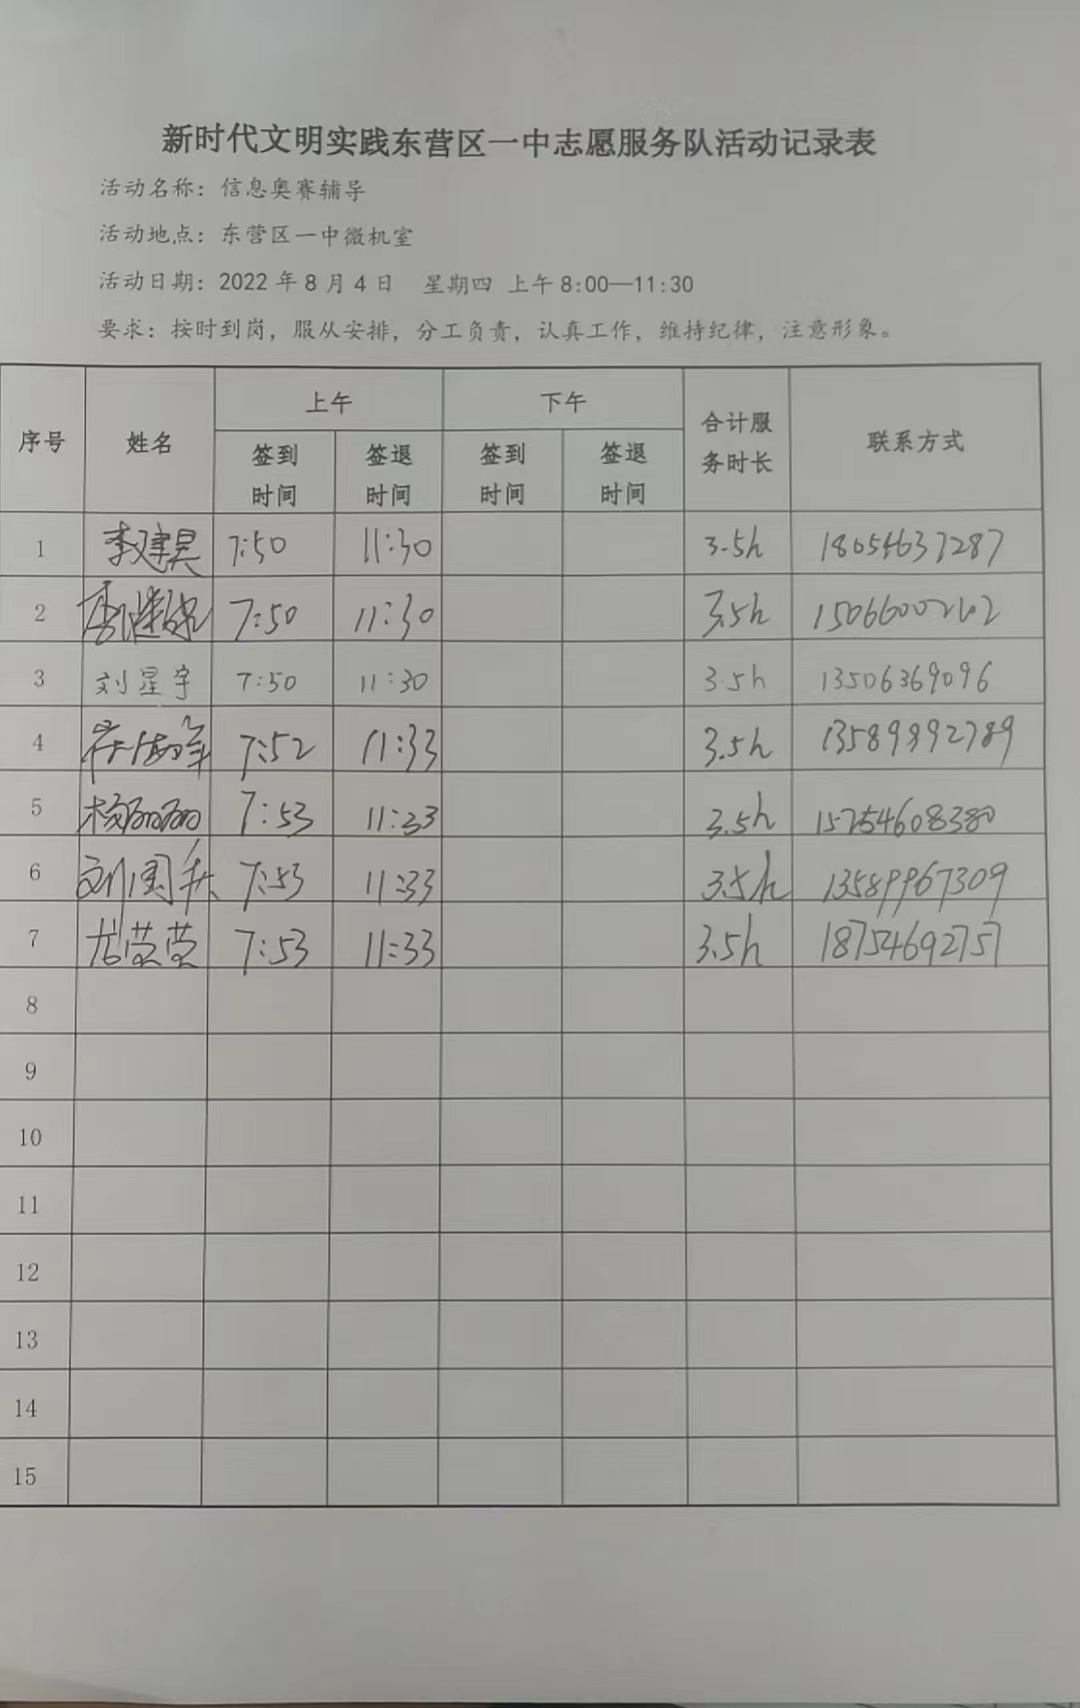 新时代文明实践东营区一中志愿服务队活动记录表
活动名称：信息奥赛辅导
活动地点：东营区一中微机室
活动日期：2022年8月4日 星期四 上午8:00—11:30
要求：按时到岗，服从安排，分工负责，认真工作，维持纪律，注意形象。
序号 姓名 上午 下午 合计服务时长 联系方式
签到时间 签退时间 签到时间 签退时间
1 李建昊 7:50 11:30 3.5h 18054637287
2 7:50 11:30 3.5h 15066002202
3 刘星宇 7:50 11:30 3.5h 13506369096
4 崔海军 7:52 11:33 3.5h 13589992789
5 杨丽丽 7:53 11:33 3.5h 15254608380
6 刘国 7:53 11:33 3.5h 13589967309
7 尤莹莹 7:53 11:33 3.5h 18754692757
8
9
10
11
12
13
14
15